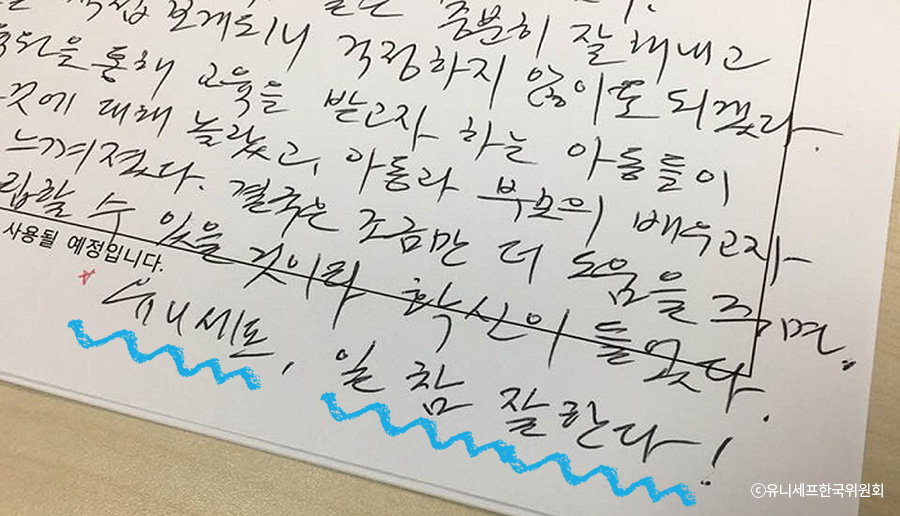 직접 보게되니 충분히 잘해내고
걱정하지 않아도 되겠다.
통해 교육을 받고자 하는 아동들이
것에 대해 놀랐고, 아동과 부모의 배우고자
느껴졌다. 결국은 조금만 더 도움을 주면
립할 수 있을 것이라 확신이 들었다.
사용될 예정입니다.
유니세프, 일 참 잘한다!
ⓒ유니세프한국위원회